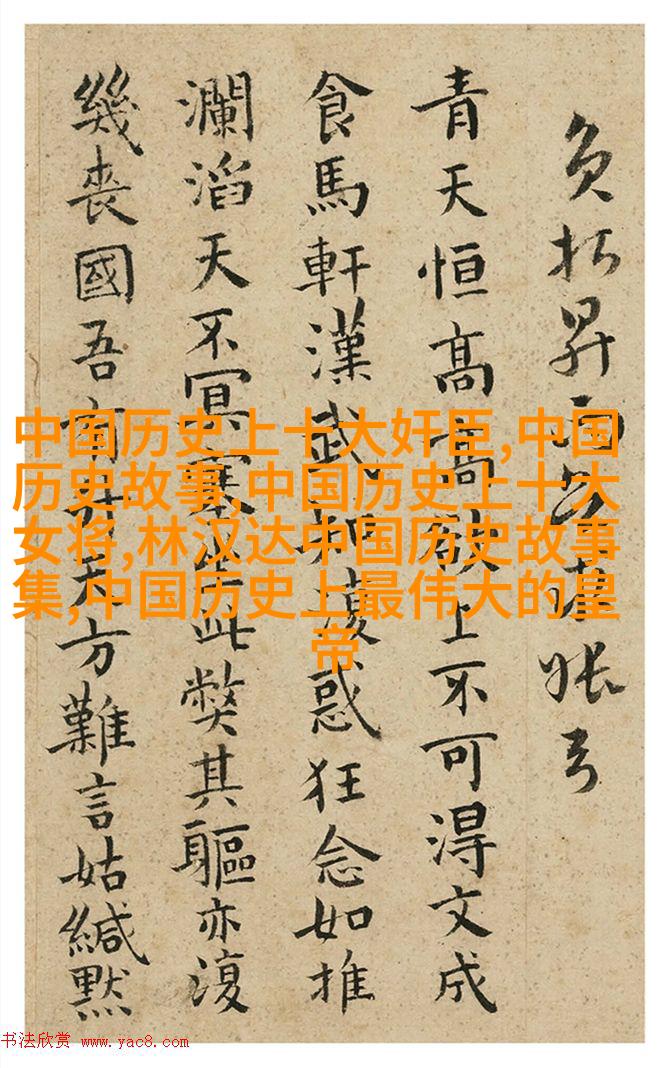 青天恒高高欲上不可得文成
食馬軒漢武復惑狂念如推
瀾滔天不冥寒此弊其軀亦復
幾喪國吾有天方難言姑緘默
中国历史上十大奸臣,中国
历史故事,中国历史上十大
女将,林汉达中国历史故事
集,中国历史上最伟大的皇
帝
书法欣赏 www.yac8.com